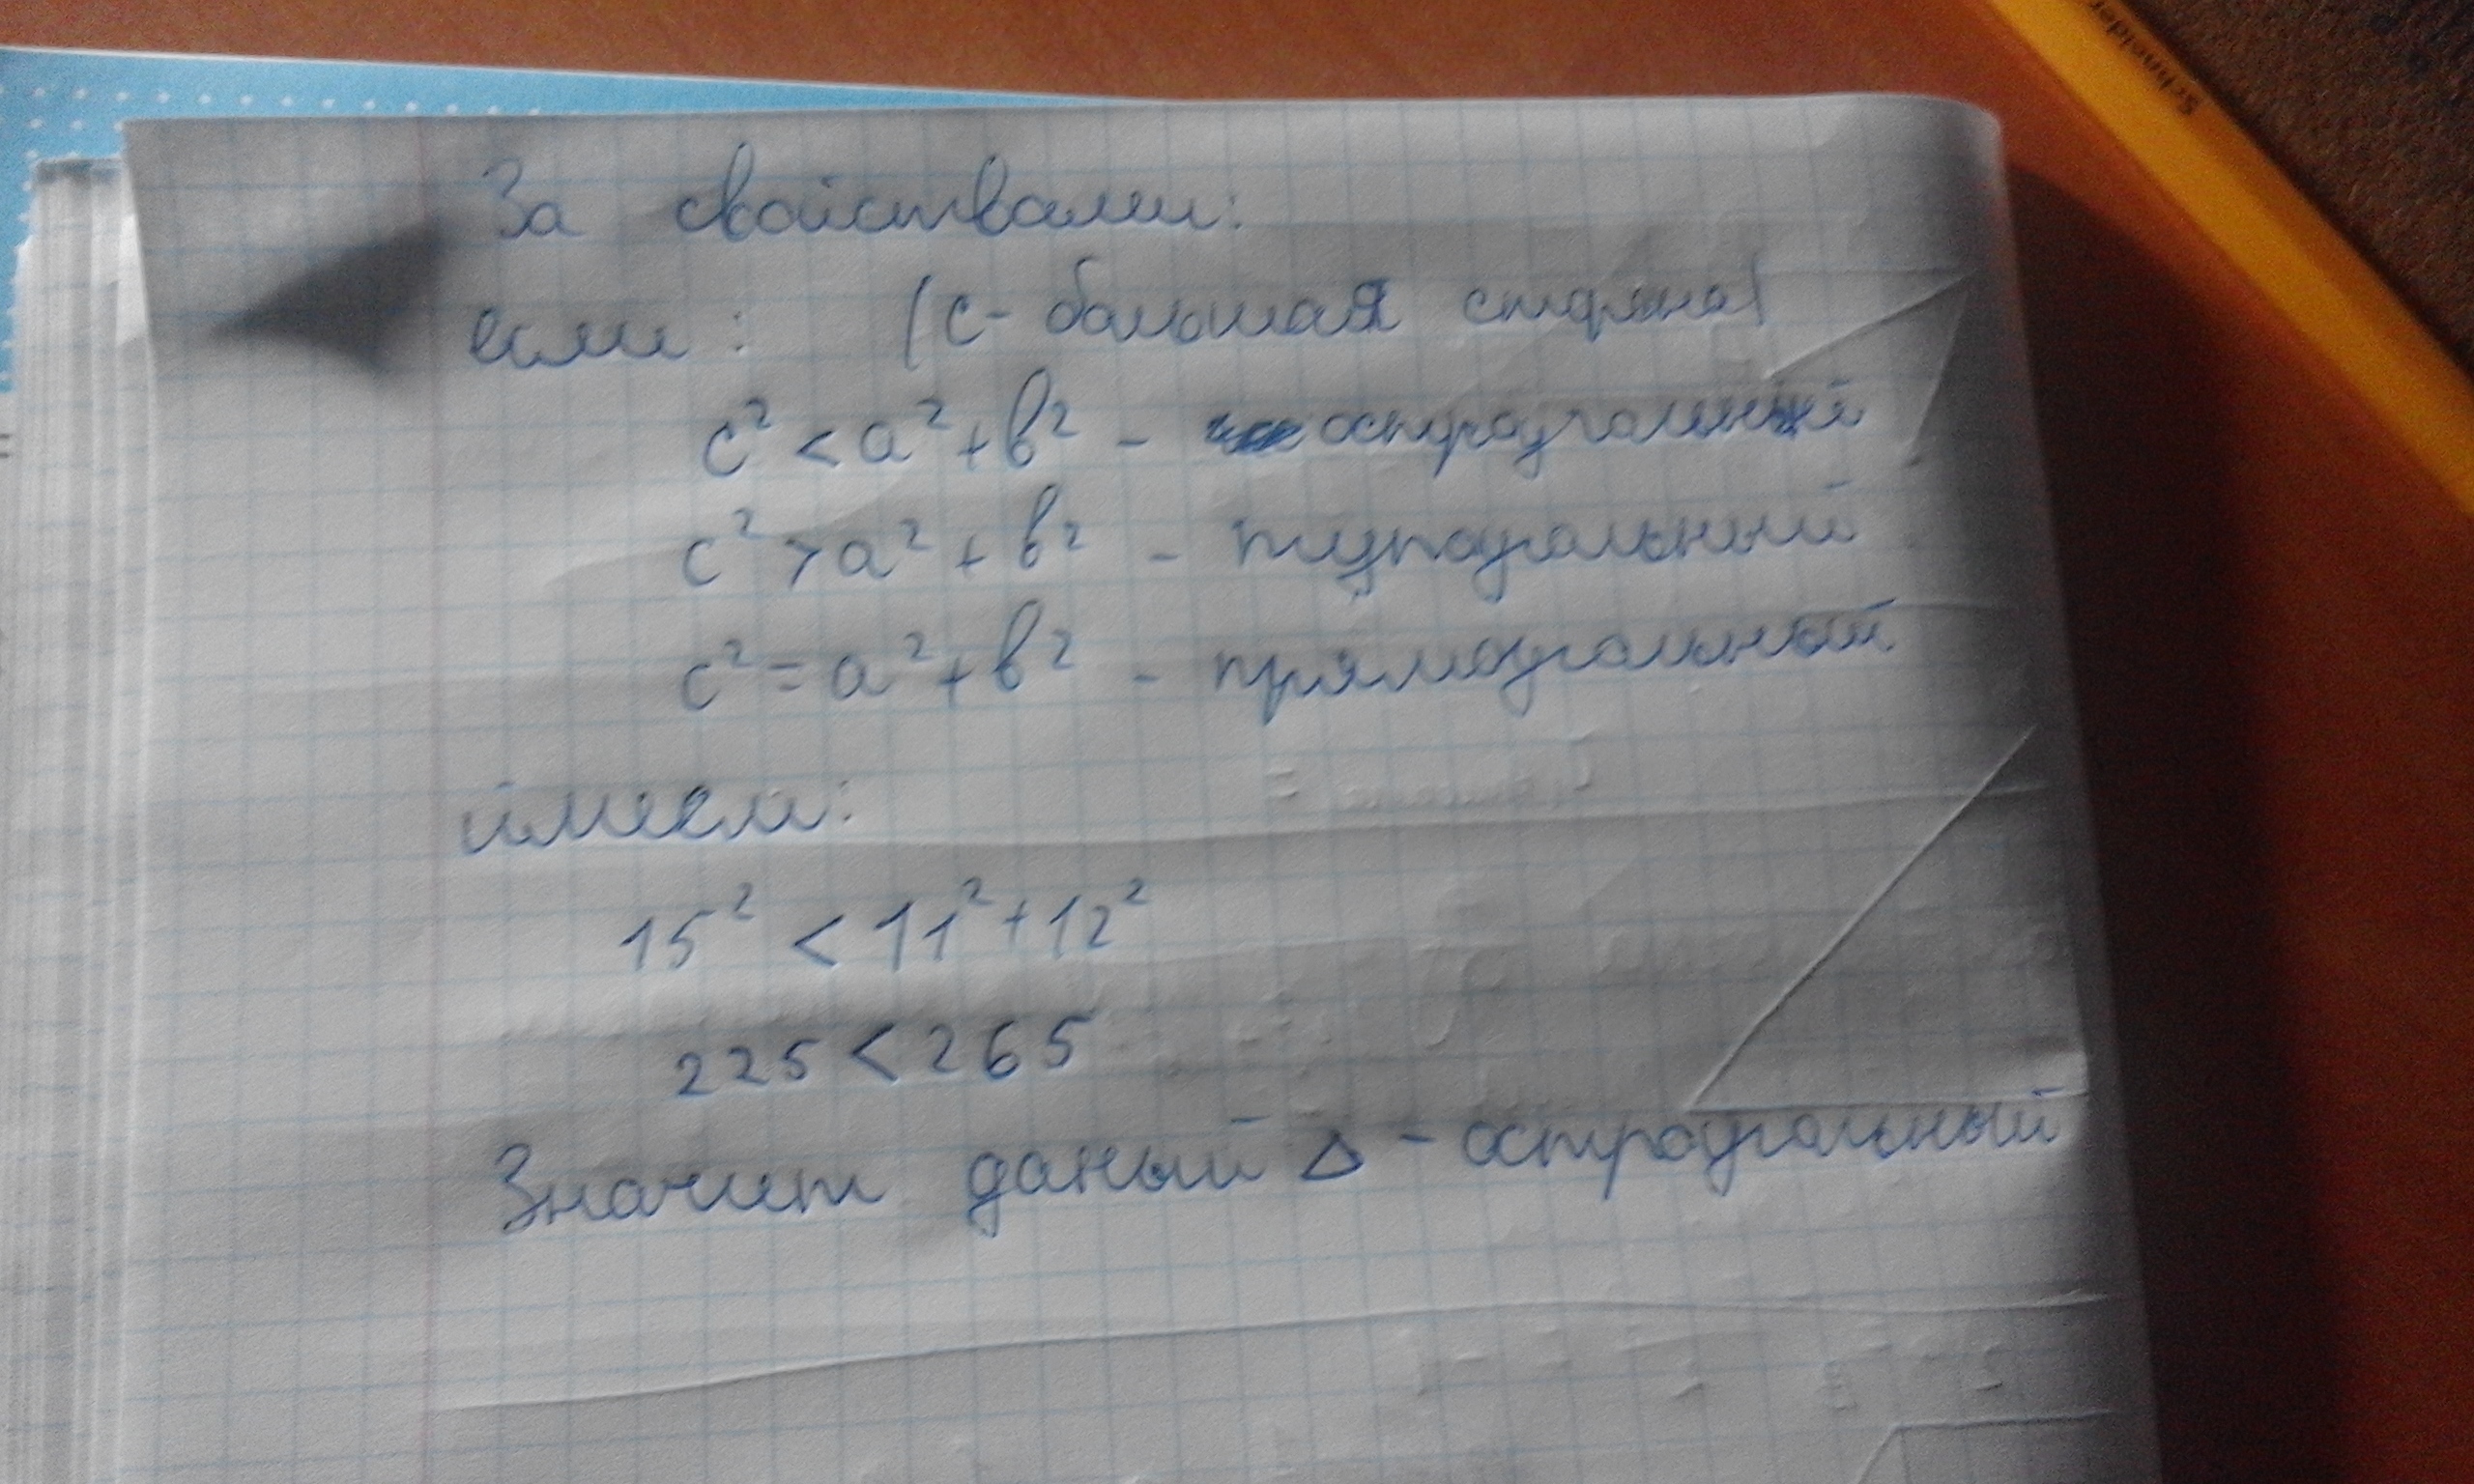 Schneider
За свойствами:
если: (с - большая сторона)
c² < a² + b² - остроугольный
c² > a² + b² - тупоугольный
c² = a² + b² - прямоугольный
имеем:
15² < 11² + 12²
225 < 265
Значит даный Δ - остроугольный